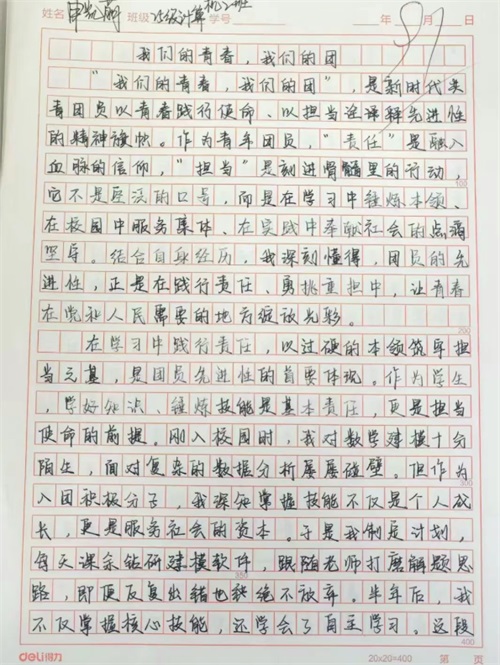 姓名 申凯蔚 班级 计算机2班 学号 年 月 日
89
我们的青春，我们的团
“我们的青春，我们的团”，是新时代共
青团员以青春践行使命、以担当诠释先进性
的精神旗帜。作为青年团员，“责任”是融入
血脉的信仰，“担当”是刻进骨髓里的行动，
它不是空泛的口号，而是在学习中锤炼本领、
在校园中服务集体、在实践中奉献社会的点滴
坚守。结合自身经历，我深刻懂得，团员的先
进性，正是在践行责任、勇挑重担中，让青春
在党和人民需要的地方绽放光彩。
在学习中践行责任，以过硬的本领筑牢担
当之基，是团员先进性的首要体现。作为学生
，学好知识、锤炼技能是基本责任，更是担当
使命的前提。刚入校园时，我对数学建模十分
陌生，面对复杂的数据分析屡屡碰壁。但作为
入团积极分子，我深知掌握技能不仅是个人成
长，更是服务社会的资本。于是我制定计划，
每天课余钻研建模软件，跟随老师打磨解题思
路，即便反复出错也从不放弃。半年后，我
不仅掌握核心技能，还学会了自主学习。这段
100
200
300
350
400
deli得力 20×20=400 第 页